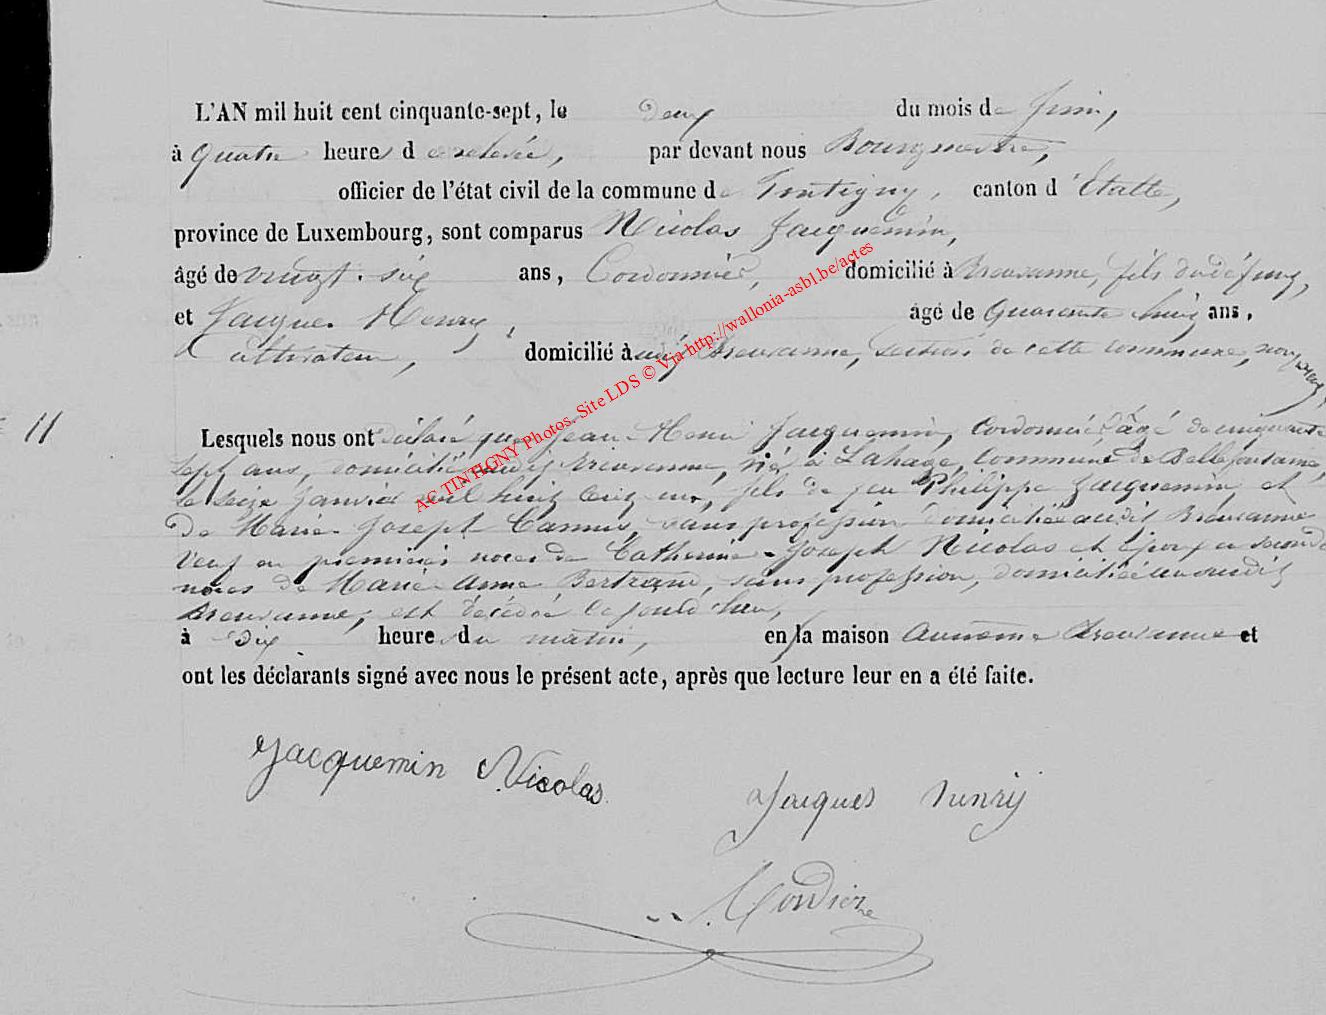 L'AN mil huit cent cinquante-sept, le deux du mois de Juin,
à quatre heures de relevée, par devant nous Bourgmestre,
officier de l'état civil de la commune de Tintigny, canton d'Etalle,
province de Luxembourg, sont comparus Nicolas Jacquemin,
âgé de vingt-six ans, Cordonnier, domicilié à Breuvanne, fils du défunt,
et Jacques Henry, âgé de quarante huit ans,
Cultivateur, domicilié à audit Breuvanne, section de cette commune,
11
Lesquels nous ont déclaré que Jean-Henri Jacquemin, Cordonnier, âgé de cinquante
sept ans, domicilié audit Breuvanne, né à Lahage, Commune de Bellefontaine,
le seize Janvier mil huit cent un, fils de feu Philippe Jacquemin et
de Marie-Joseph Camus, sans profession domiciliée audit Breuvanne
Veuf en premières noces de Catherine-Joseph Nicolas et époux en seconde
noces de Marie-Anne Bertrand, sans profession, domiciliée audit
Breuvanne, est décédé le jour d'hier,
à dix heures du matin, en la maison Breuvanne et
ont les déclarants signé avec nous le présent acte, après que lecture leur en a été faite.
Jacquemin Nicolas
Jacques henry
AC TINTIGNY Photos. Site LDS © Via http://wallonia-asbl.be/actes